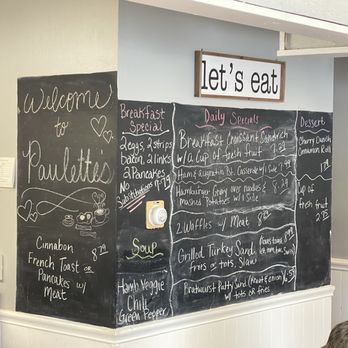 let's eat
Welcome
to
Paulette's
Cinnabon
French Toast or
Pancakes w/
Meat
Breakfast
Special
2 eggs, 2 strips
bacon, 2 links
2 Pancakes
No
Substitutions
Soup
Ham & Veggie
Chili
Green Pepper
Daily Specials
Breakfast Croissant Sandwich
w/ a cup of fresh fruit
Ham & Augratin Casserole w/ 1 side
Hamburger Gravy over noodles or
mashed Potatoes w/ 1 side
2 Waffles w/ Meat
Grilled Turkey Sand
fries or tots, Slaw
Bratwurst Patty Sand (Kraut & onion)
w/ tots or fries
Dessert
Cherry Crunch
Cinnamon Roll
Cup of
fresh fruit